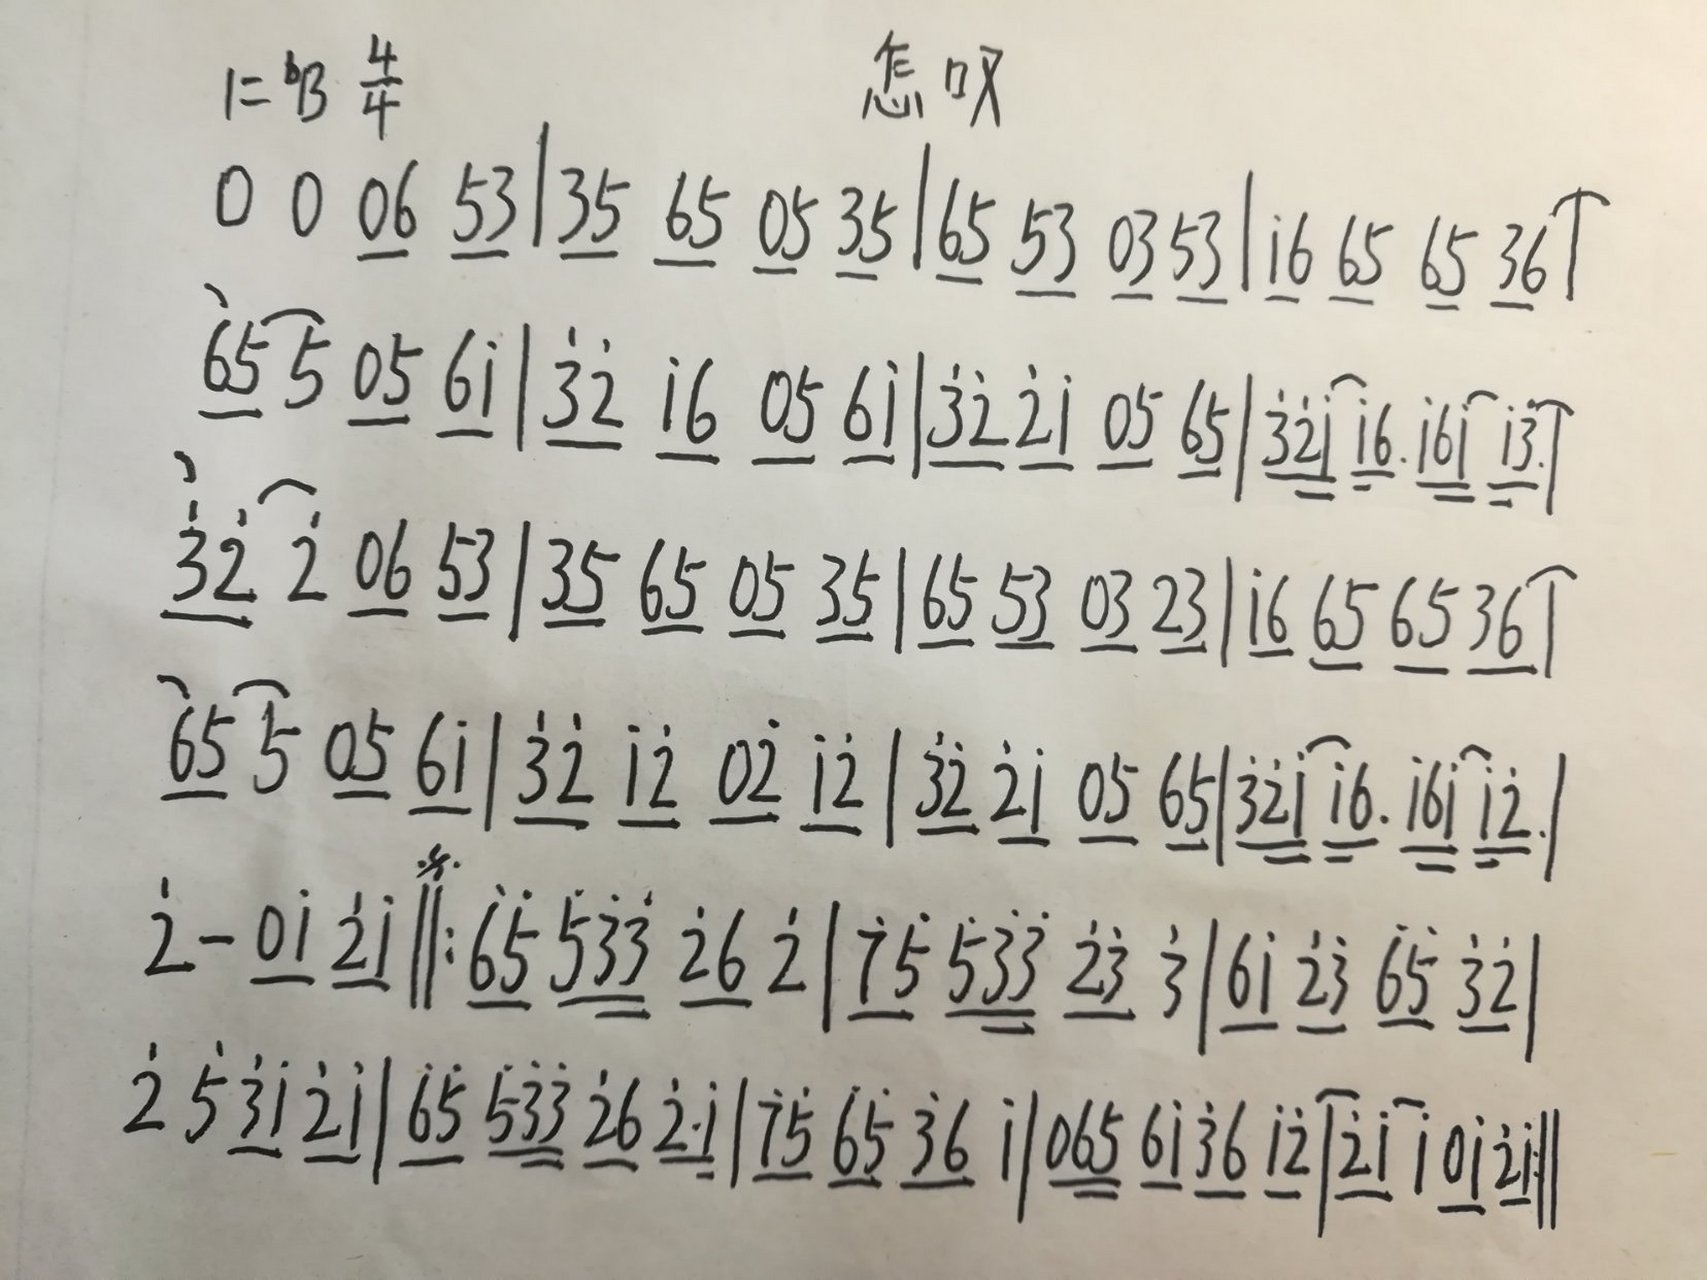 1=ᵇB 4/4 怎叹
0 0 06 53 | 35 65 05 35 | 65 53 03 53 | i6 65 65 36 |
65 5 05 6i | 3̇2̇ i6 05 6i | 3̇2̇ 2̇i 05 65 | 3̇2̇i i6. i6i i3̇. |
3̇2̇ 2̇ 06 53 | 35 65 05 35 | 65 53 03 23 | i6 65 65 36 |
65 5 05 6i | 3̇2̇ i2̇ 02̇ i2̇ | 3̇2̇ 2̇i 05 65 | 3̇2̇i i6. i6i i2̇. |
2̇ - 0i 2̇i ‖: 6̇5̇ 5̇3̇3̇ 2̇6 2̇ | 7̇5̇ 5̇3̇3̇ 2̇3̇ 3̇ | 6i 2̇3̇ 6̇5̇ 3̇2̇ |
2̇ 5̇ 3̇i 2̇i | 6̇5̇ 5̇3̇3̇ 2̇6 2̇·i | 7̇5̇ 6̇5̇ 3̇6 i | 065 6i 3̇6 i2̇ | 2̇i i 0i 2̇i :‖